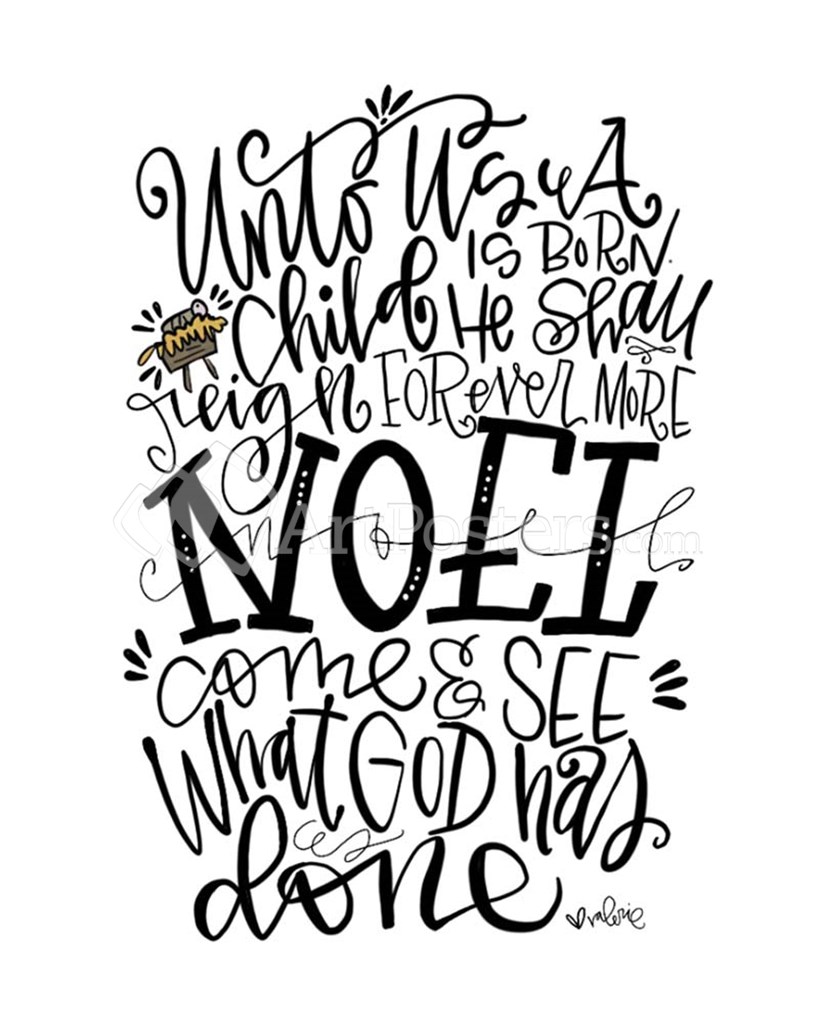 Unto Us A
Child IS BORN.
He Shall
reign FORever MORE
NOEL
noel
ArtPosters.com
come & SEE
What GOD has
done
valerie